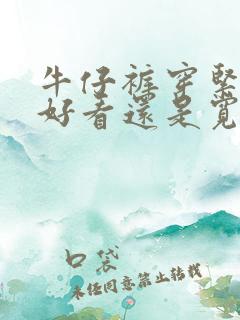 牛仔裤穿紧
好看还是宽
口袋
未经同意禁止转载